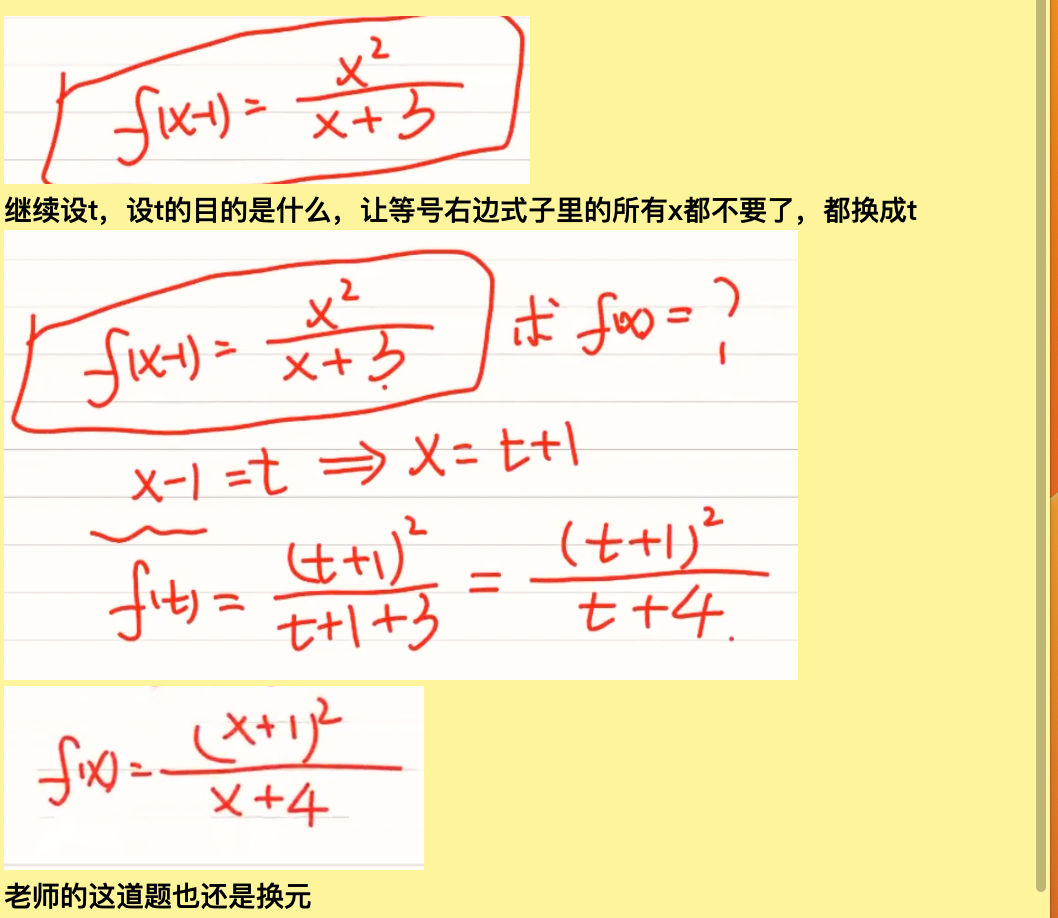 f(x-1) = x²/(x+3)
继续设t，设t的目的是什么，让等号右边式子里的所有x都不要了，都换成t
f(x-1) = x²/(x+3) 求 f(x) = ?
x-1 = t ⇒ x = t+1
f(t) = (t+1)²/(t+1+3) = (t+1)²/(t+4).
f(x) = (x+1)²/(x+4)
老师的这道题也还是换元